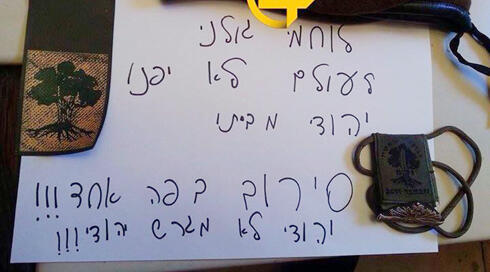 לוחמי גולני
לעולם לא יפנו
יהודי מביתו
סירוב בפה אחד!!!
יהודי לא מגרש יהודי!!!